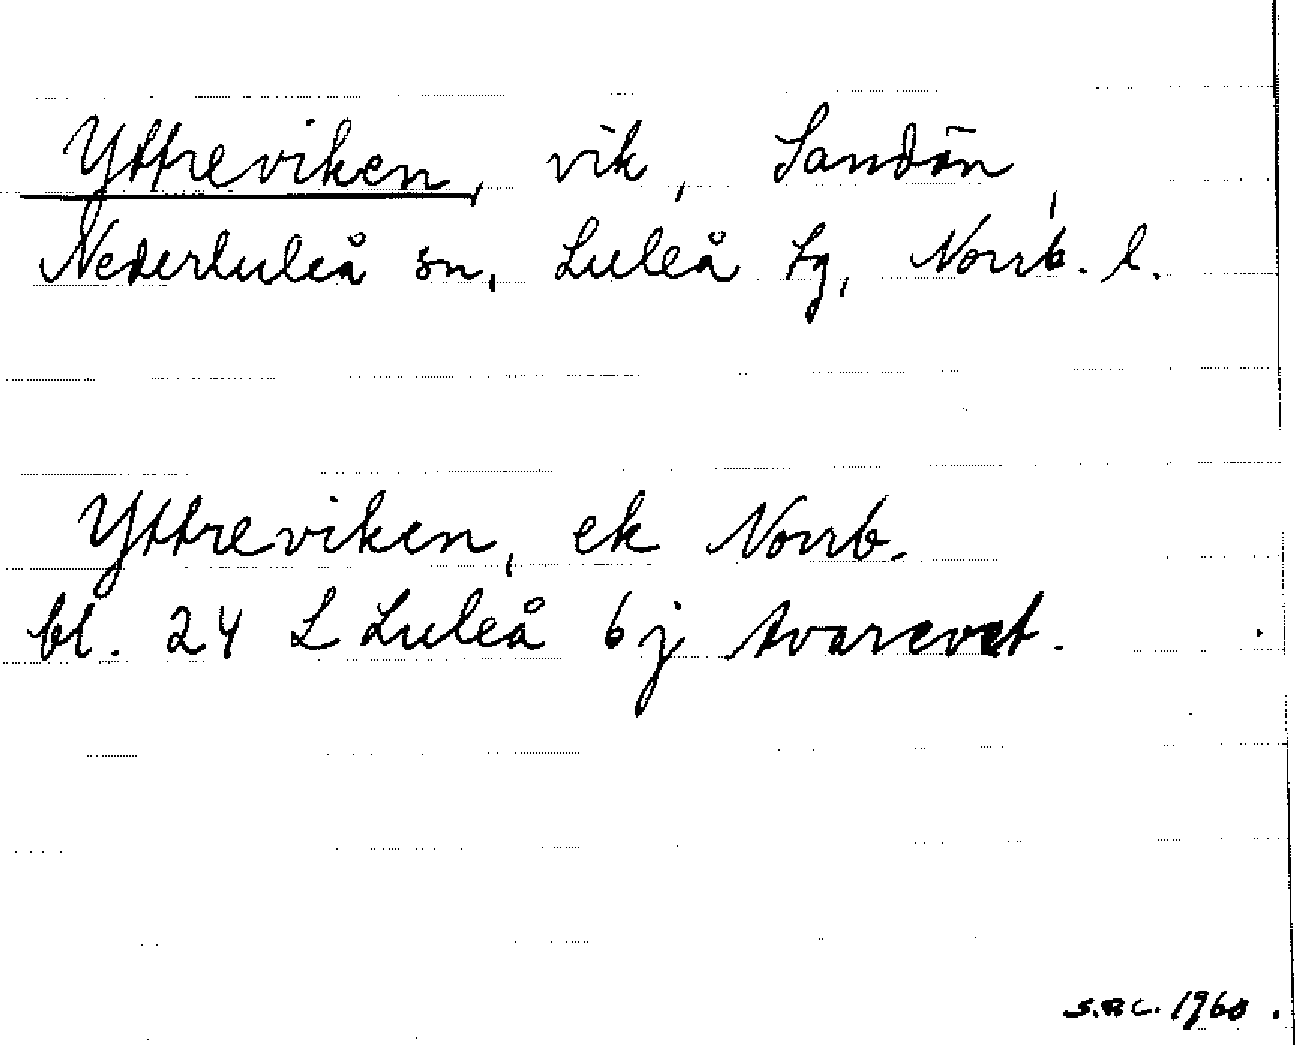 Yttreviken, vik, Sandön,
Nederluleå sn, Luleå tg, Norrb. l.
Yttreviken, ek Norrb.
bl. 24 L Luleå 6j
1960.